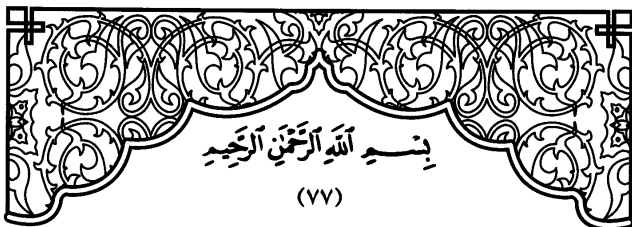 بِسْمِ ٱللَّهِ ٱلرَّحْمَٰنِ ٱلرَّحِيمِ
(٧٧)